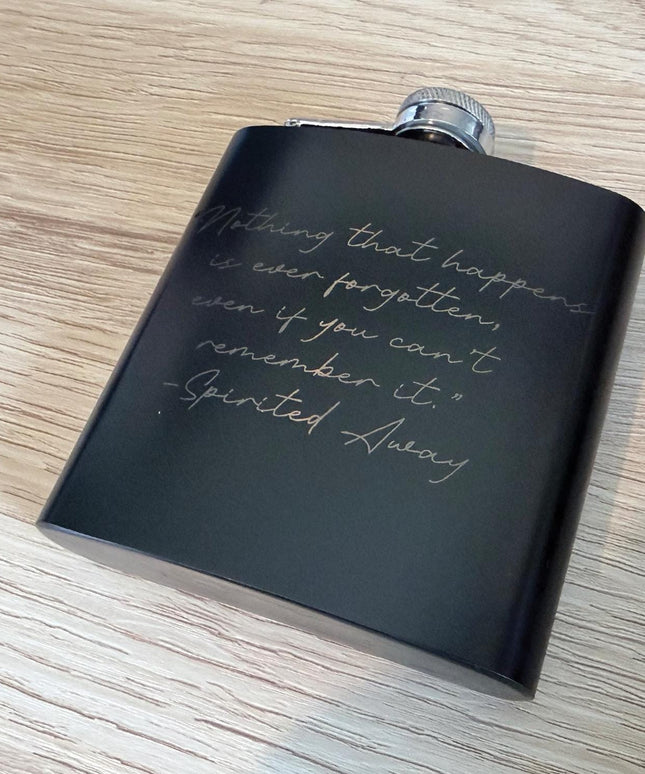 Nothing that happens
is ever forgotten,
even if you can't
remember it."
-Spirited Away